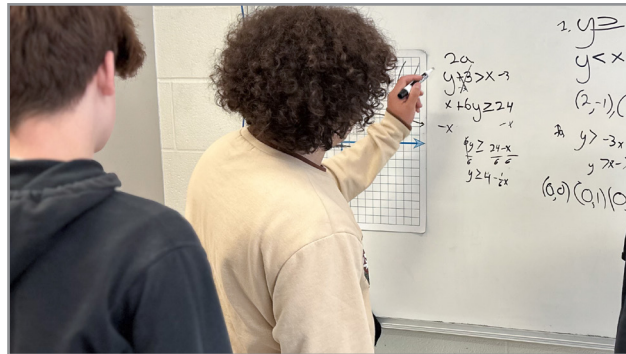 2a
y+3>x-3
x+6y≥24
-x -x
6y≥ 24-x
6 6 6
y≥4-1/6x
1. y≥
y<x
(2,-1),(
y>-3x
y>x-
(0,0)(0,1)(0,